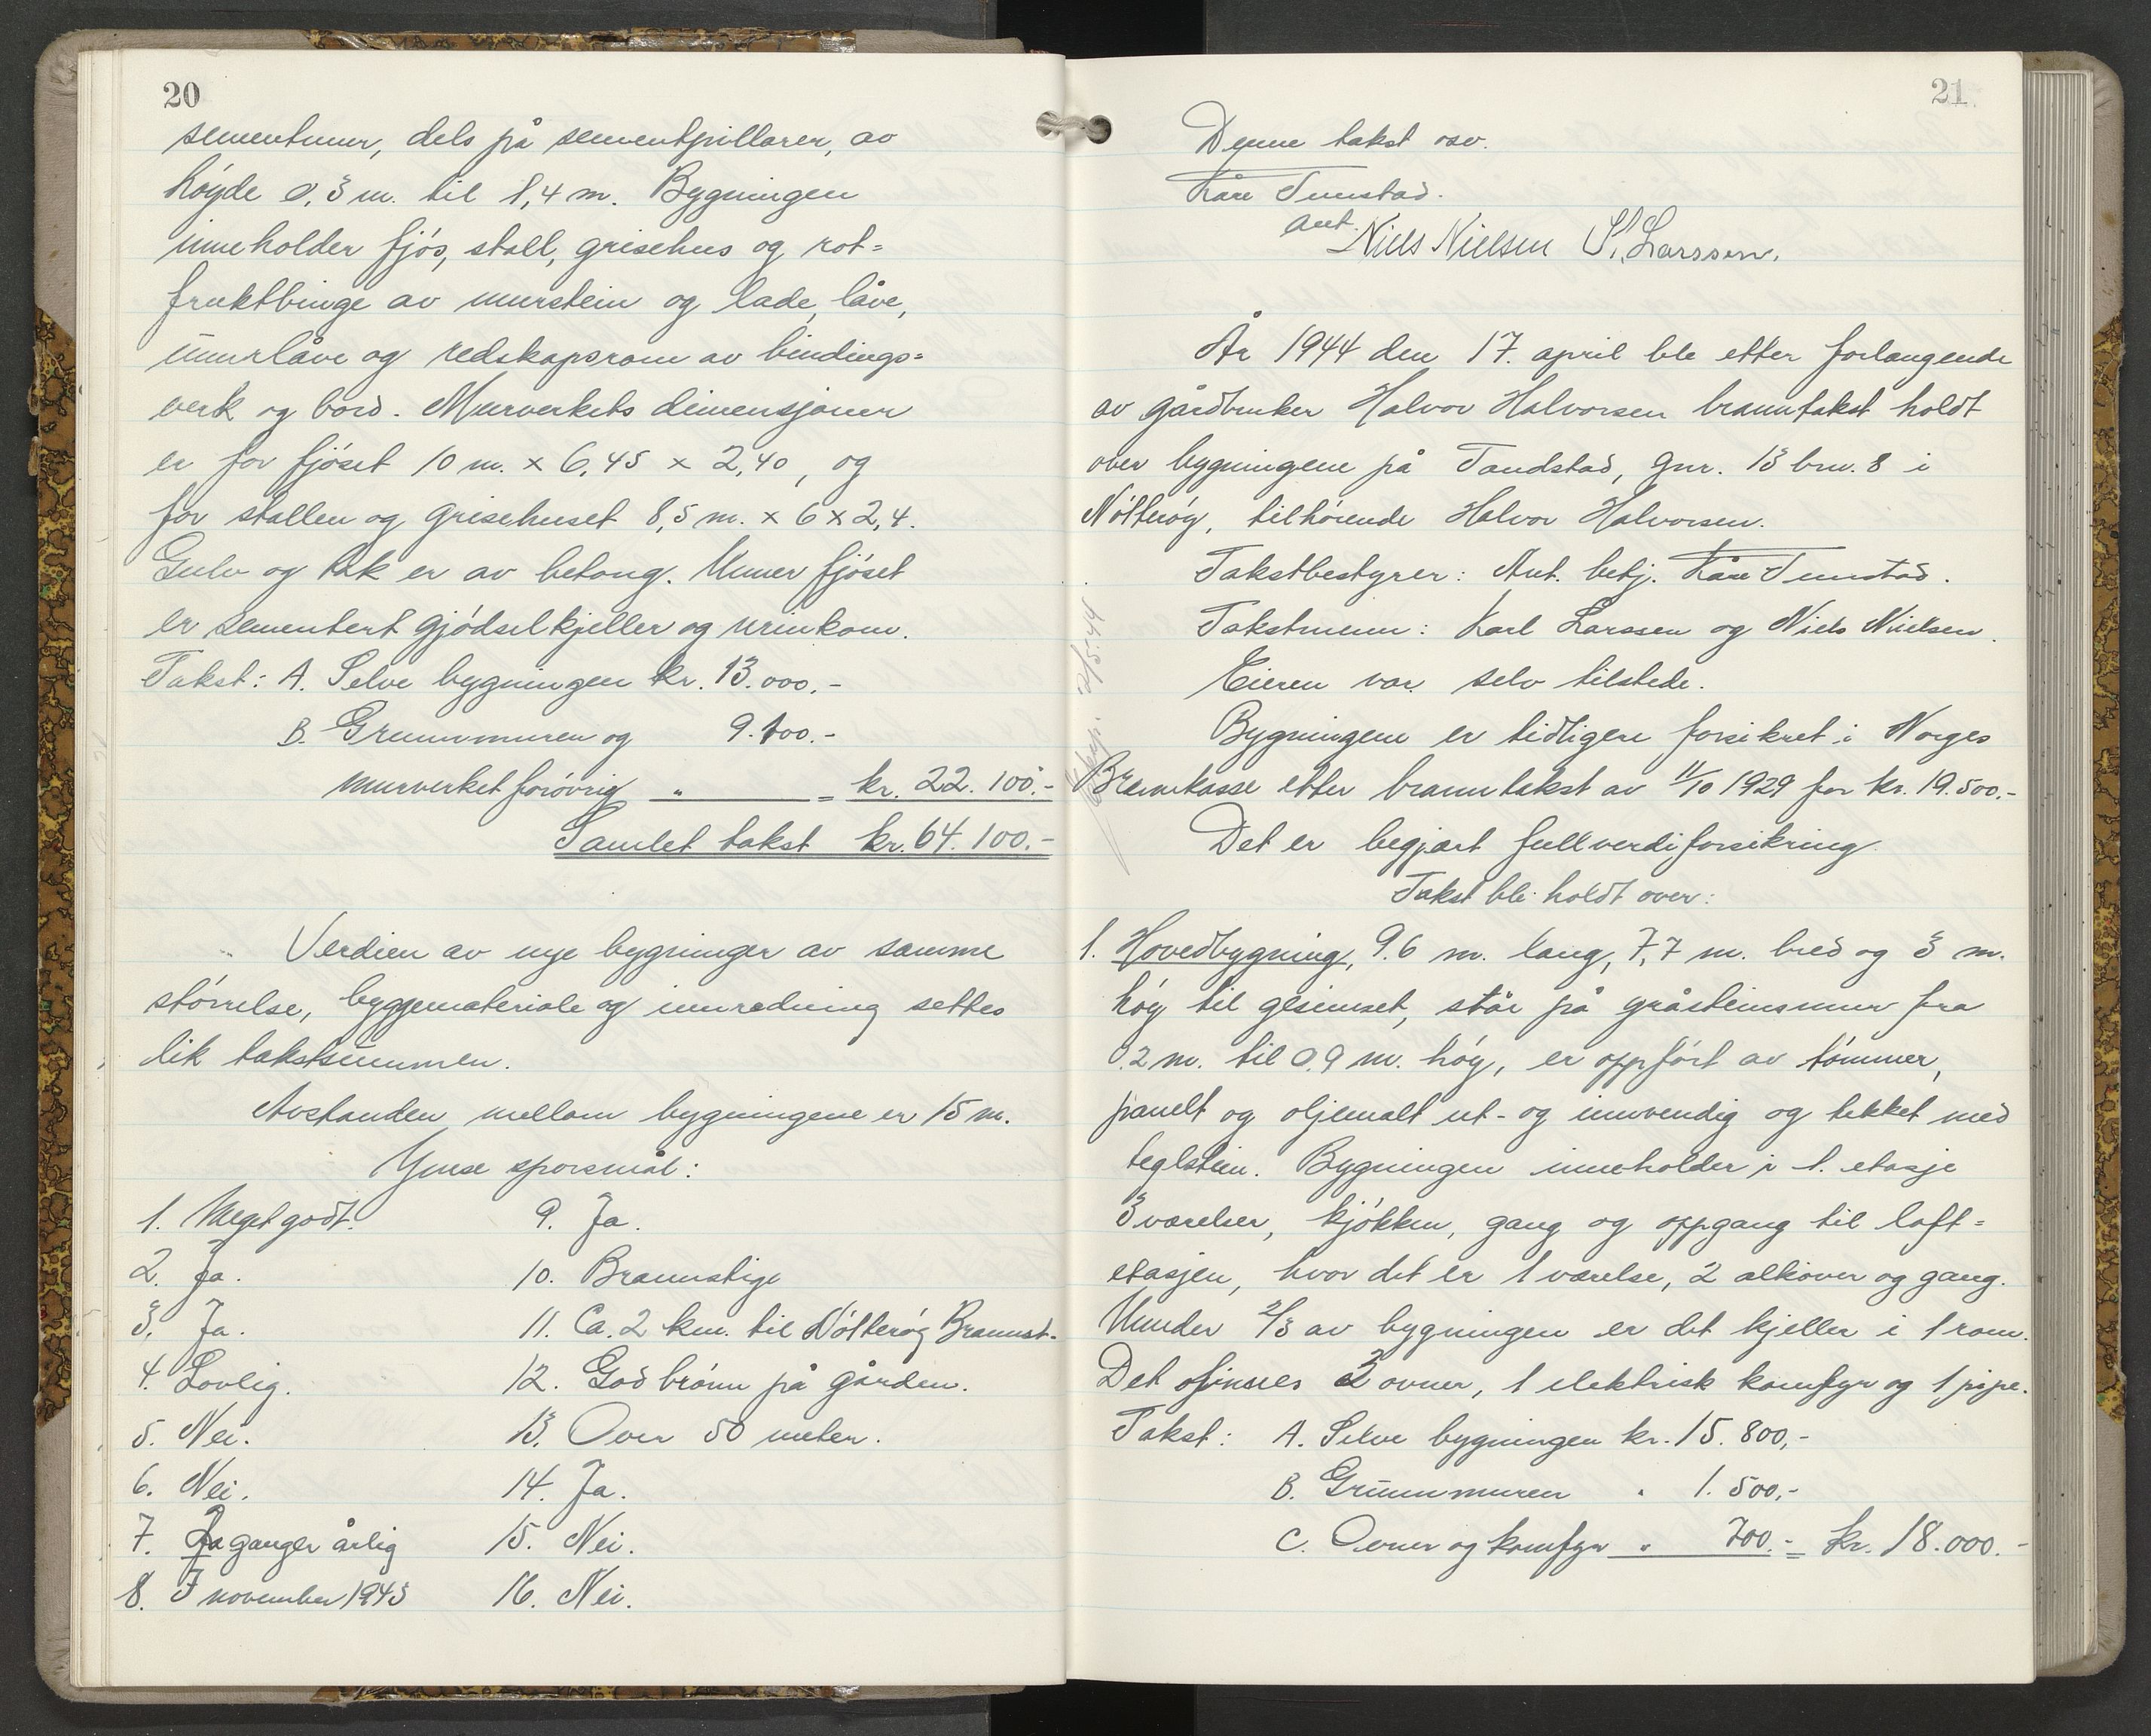 20
sementmur, dels på sementpillarer, av
höyde 0,3 m. til 1,4 m. Bygningen
inneholder fjös, stall, grisehus og rot=
fruktbinge av murstein og lade, låve,
umurlåve og redskapsrom av bindings=
verk og bord. Murverkets dimensjoner
er for fjöset 10 m. x 6,45 x 2,40, og
for stallen og grisehuset 8,5 m. x 6 x 2,4.
Gulv og tak er av betong. Unner fjöset
er sementert gjödselkjeller og urinkom.
Takst: A. Selve bygningen kr. 13.000.-
B. Grunnmuren og 9.100.-
murverket forövrig " = kr. 22.100.-
Samlet takst kr. 64.100.-
Verdien av nye bygninger av samme
störrelse, byggemateriale og innredning settes
lik takstsummen.
Avstanden mellom bygningene er 15 m.
Ymse sporsmål:
1. Meget godt.
2. Ja.
3. Ja.
4. Lovlig.
5. Nei.
6. Nei.
7. To ganger årlig
8. I november 1943
9. Ja.
10. Brannstige
11. Ca. 2 km. til Nötteröy Brannst.
12. God brönn på gården.
13. Over 50 meter.
14. Ja.
15. Nei.
16. Nei.
21
Denne takst osv.
Kåre Tunstad.
aut.
Niels Nielsen K. Larssen.
År 1944 den 17. april ble etter forlangende
av gårdbruker Halvor Halvorsen branntakst holdt
over bygningene på Tandstad, gnr. 13 brn. 8 i
Nötteröy, tilhörende Halvor Halvorsen.
Takstbestyrer: Aut. betj. Kåre Tunstad.
Takstmenn: Karl Larssen og Niels Nielsen.
Eieren var selv tilstede.
Bygningene er tidligere forsikret i Norges
Brannkasse etter branntakst av 11/10 1929 for kr. 19.500.-
Det er begjært fullverdiforsikring.
Takst ble holdt over:
1. Hovedbygning, 9.6 m. lang, 7,7 m. bred og 3 m.
höy til gesimset, står på gråsteinsmur fra
0.2 m. til 0.9 m. höy, er oppfört av tömmer,
panelt og oljemalt ut- og innvendig og tekket med
teglstein. Bygningen inneholder i 1. etasje
3 værelser, kjökken, gang og oppgang til loft=
etasjen, hvor det er 1 værelse, 2 alkover og gang.
Unnder 2/3 av bygningen er det kjeller i 1 rom.
Det finnes 2 ovner, 1 elektrisk komfyr og 1 pipe.
Takst: A. Selve bygningen kr. 15.800,-
B. Grunnmuren " 1.500,-
C. Ovner og komfyr " 700.- = kr. 18.000.-